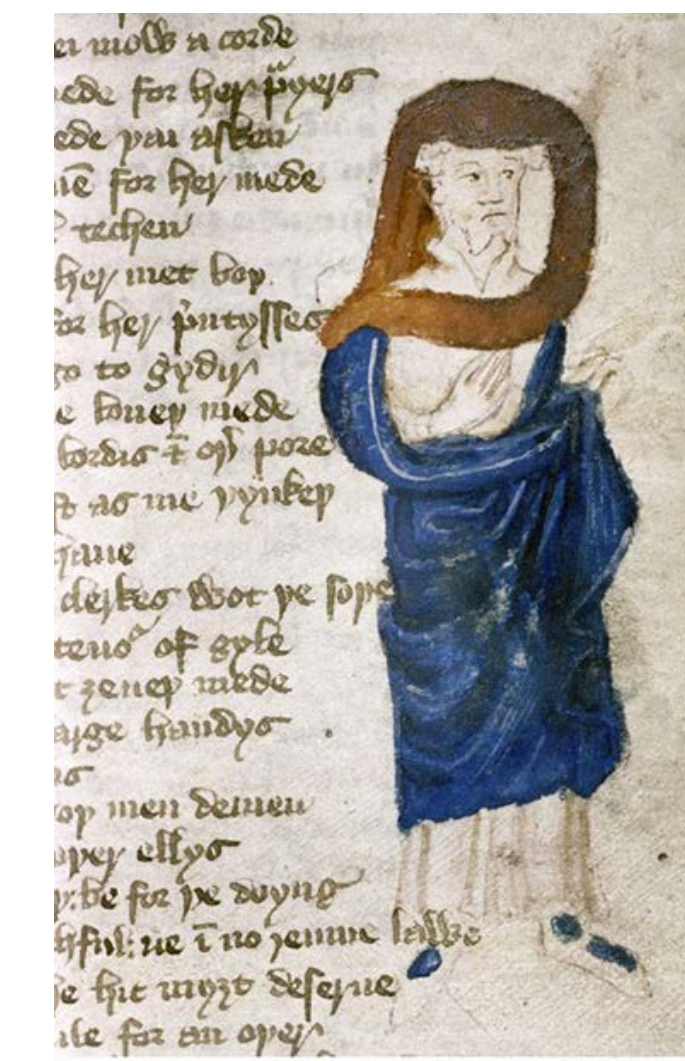 ei mow a corde
ede for her pͣyers
ede þai asken
iē for her mede
techen
her met boþ
for her pͥntysses
go to gydir
e koueþ mede
lordis ⁊ oþ̉ pore
as me þynkeþ
haue
clerkes wot þe soþe
of gyle
t ȝeueþ mede
arge handys
as
oþ men demen
oþer ellys
y: be for þe doyng
hful: ne ī no ȝenuie lawe
he hit myȝt deserue
ile for an oþer